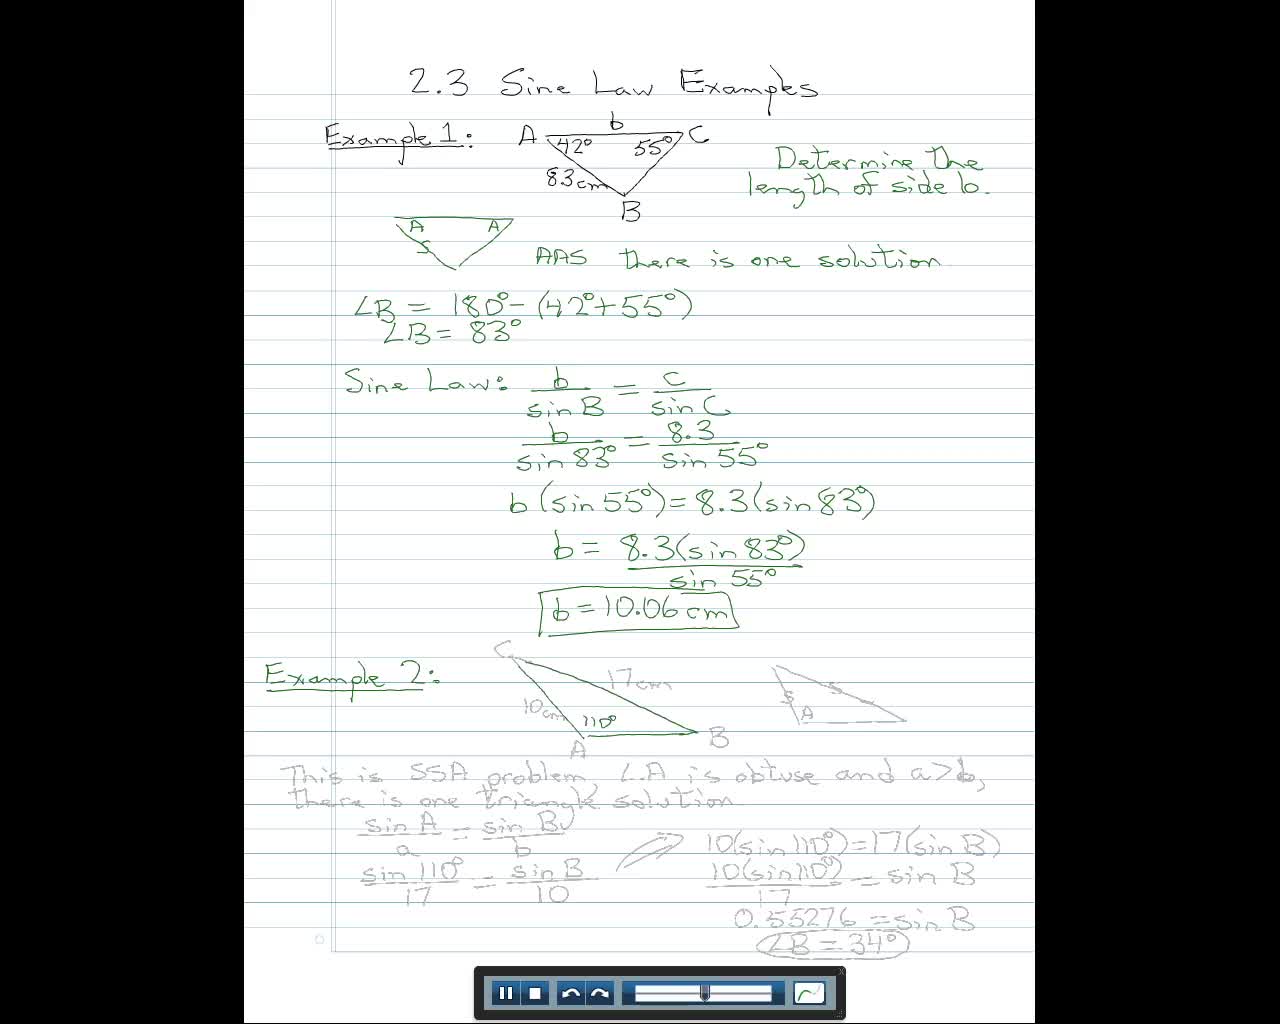 2.3 Sine Law Examples
Example 1:
b
A
C
42° 55°
8.3cm
B
Determine the
length of side b.
A A
S
AAS there is one solution
∠B = 180° - (42° + 55°)
∠B = 83°
Sine Law: b/sin B = c/sin C
b/sin 83° = 8.3/sin 55°
b(sin 55°) = 8.3(sin 83°)
b = 8.3(sin 83°)/sin 55°
b = 10.06 cm
Example 2:
C
17cm
10cm
110°
A
B
S S
A
This is SSA problem, ∠A is obtuse and a>b,
there is one triangle solution
sin A/a = sin B/b
sin 110°/17 = sin B/10
10(sin 110°) = 17(sin B)
10(sin 110°)/17 = sin B
0.55276 = sin B
∠B = 34°